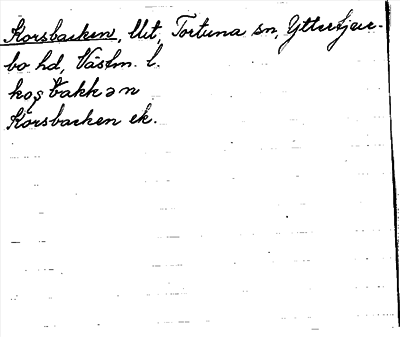 Korsbacken, Ut, Tortuna sn, Yttertjur-
bo hd, Västm. l.
koş bakkən
Korsbacken ek.